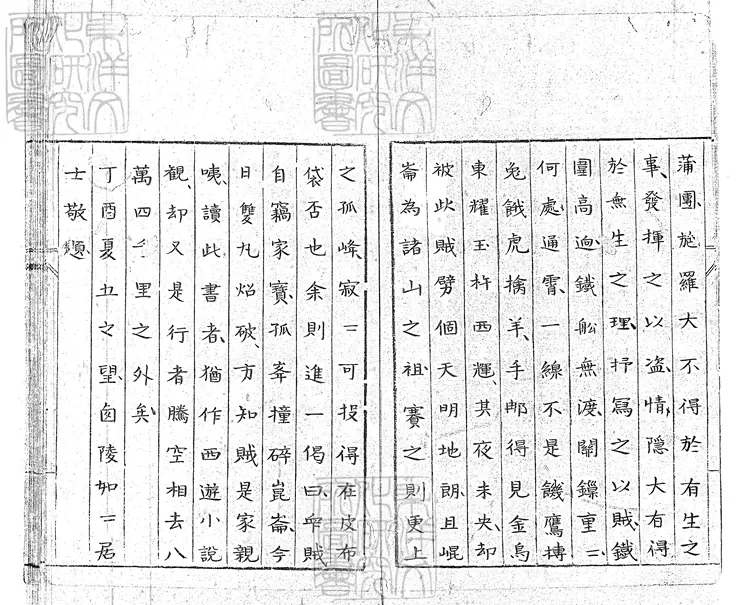 蒲團、施羅大不得於有生之
事、發揮之以盗情、隐大有得
於無生之理、抒寫之以賊、鐵
圍高逈、鐵船無渡、關鏁重〻
何處通霄、一線不是饑鷹摶
兔餓虎擒羊、手邮得見金烏
東耀玉杵西輝、其夜未央、却
被此賊劈個天明地朗、且崐
崙為諸山之祖、賽之則更上
之孤峰、寂〻可投得在皮布
袋否也余則進一偈曰、卆賊
自竊家寶、孤峯撞碎崑崙、今
日雙丸焰破、方知賊是家親
咦、讀此書者、猶作西遊小說
觀、却又是行者騰空相去八
萬四千里之外矣、
丁酉夏五之望、卤陵如〻居
士敬題、
東洋文化研究所圖書